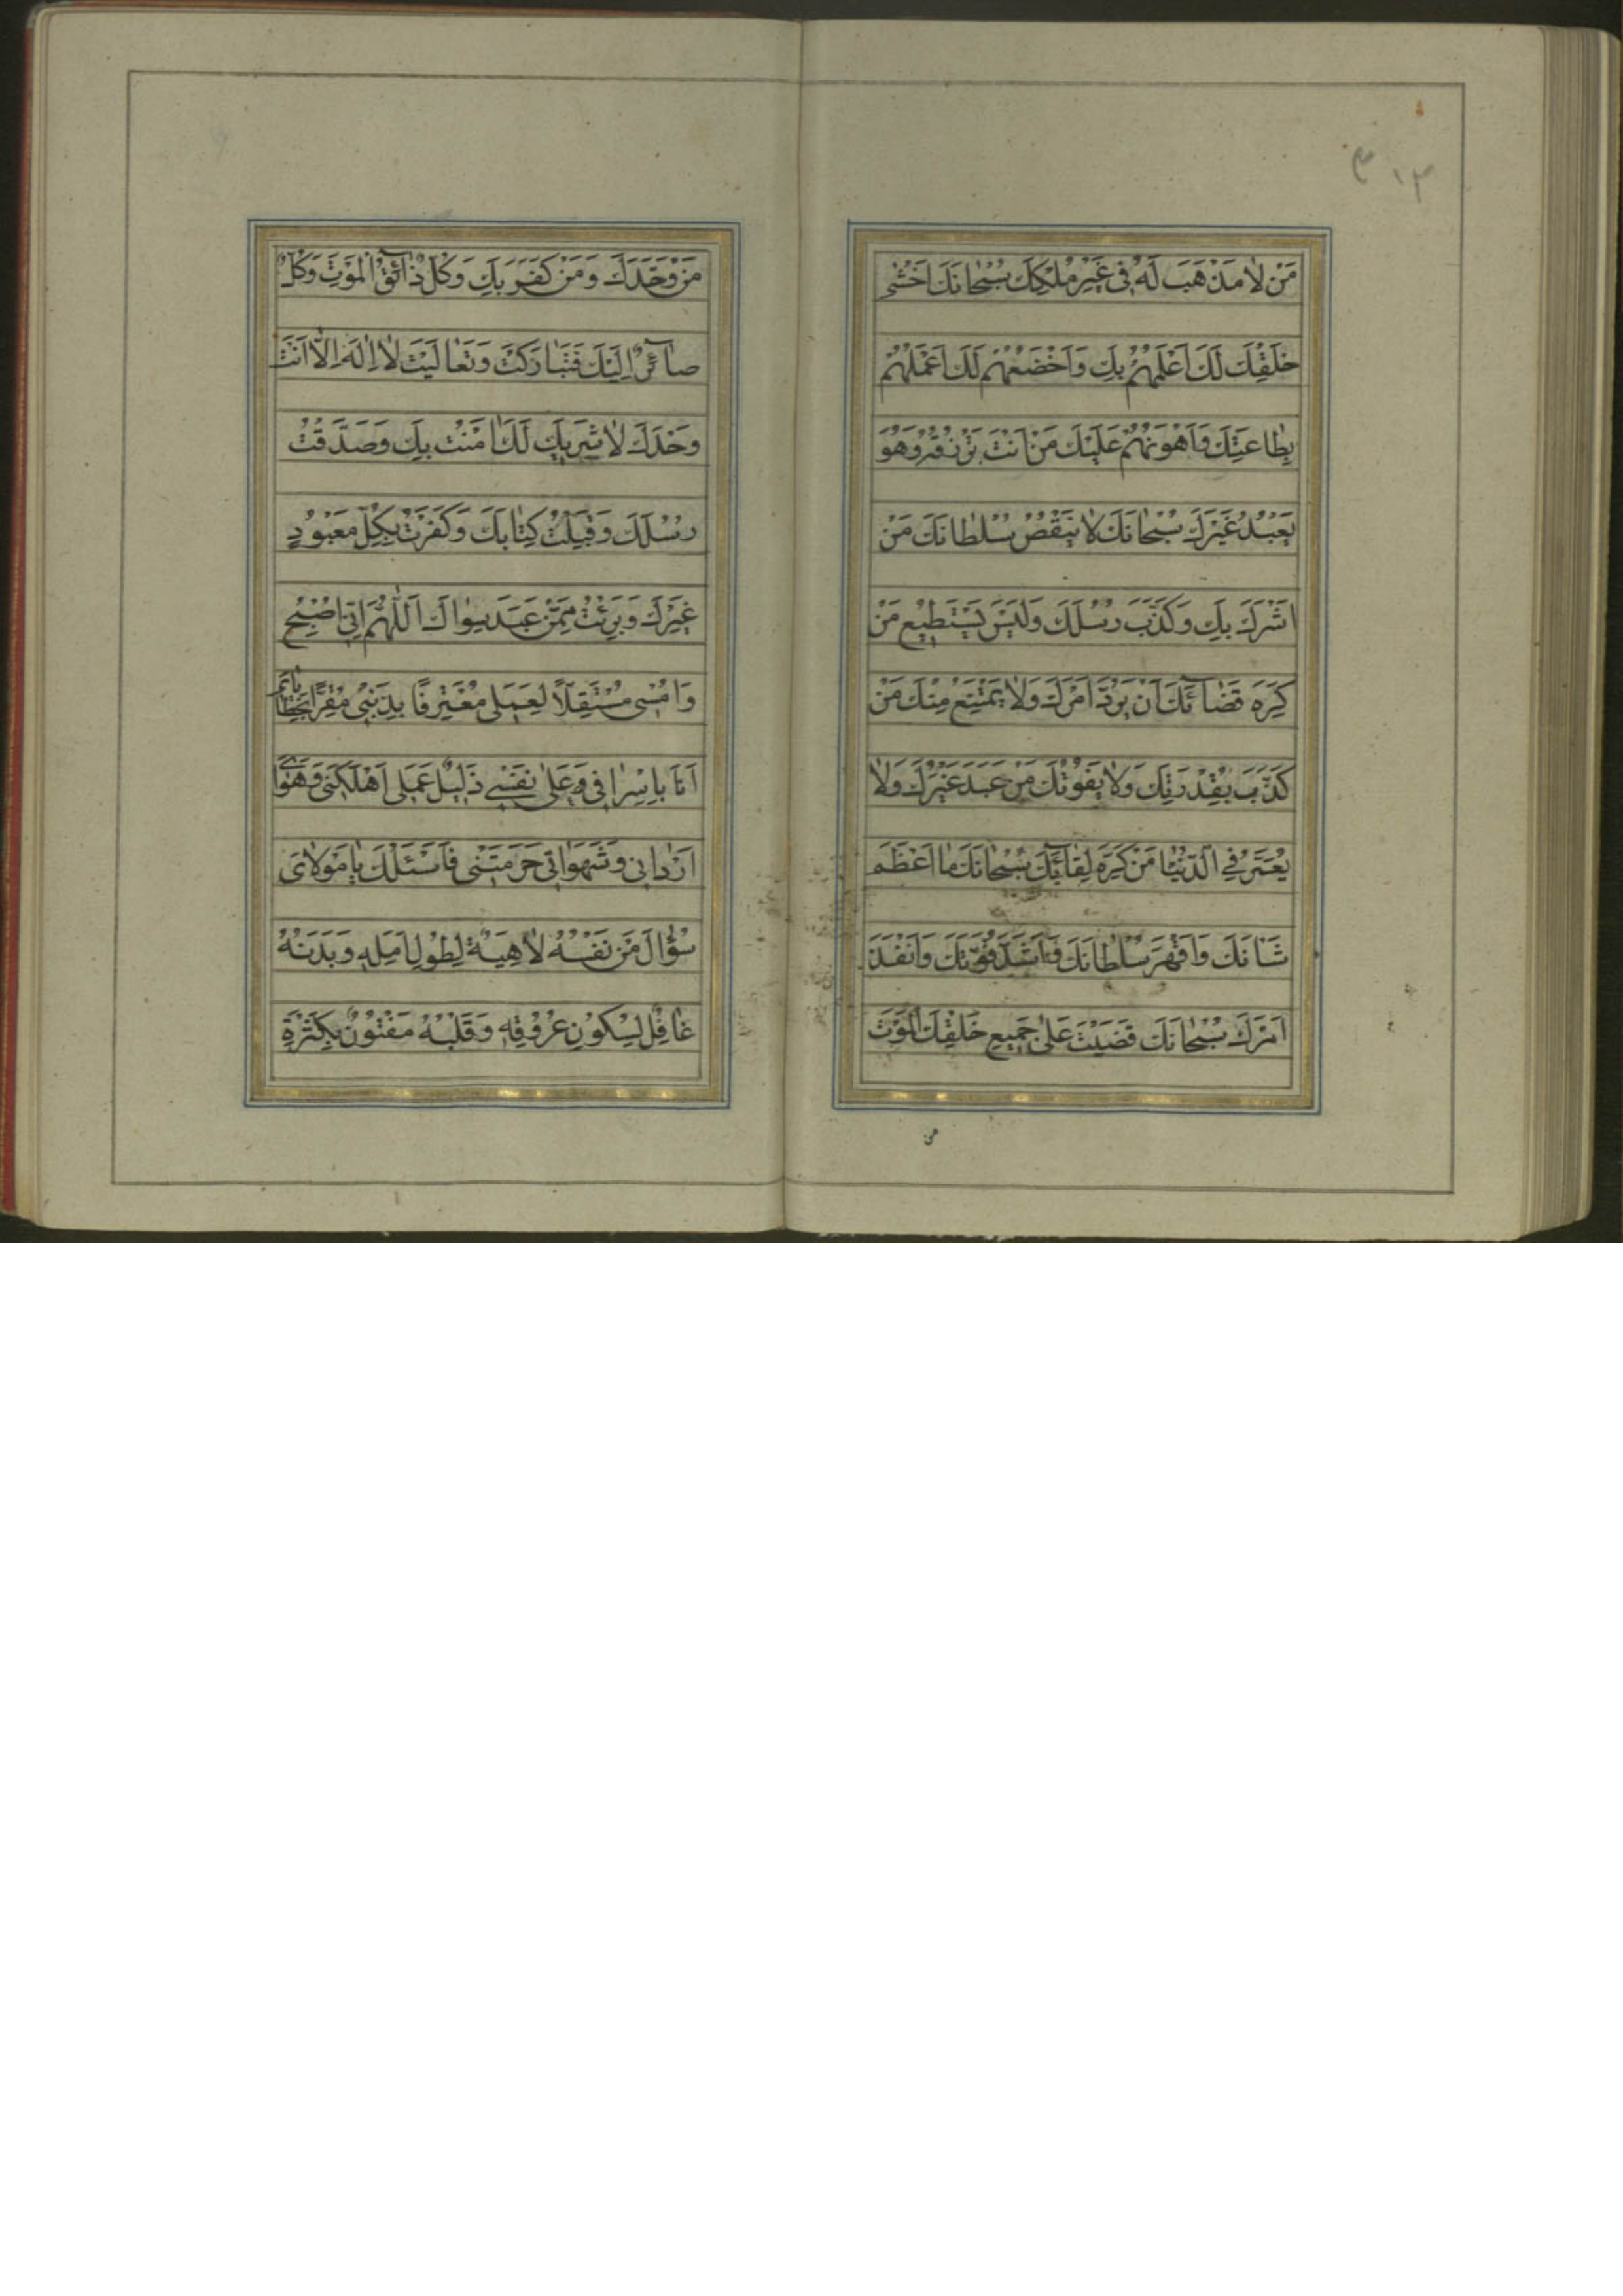 ٣١٣
مَنْ لَا مَذْهَبَ لَهُ فِي غَيْرِ مُلْكِكَ سُبْحَانَكَ اَخْشٰى
خَلْقِكَ لَكَ اَعْلَمُهُمْ بِكَ وَاَخْضَعُهُمْ لَكَ اَعْمَلُهُمْ
بِطَاعَتِكَ وَاَهْوَنُهُمْ عَلَيْكَ مَنْ اَنْتَ تَرْزُقُهُ وَهُوَ
يَعْبُدُ غَيْرَكَ سُبْحَانَكَ لَا يَنْقُصُ سُلْطَانَكَ مَنْ
اَشْرَكَ بِكَ وَكَذَّبَ رُسُلَكَ وَلَيْسَ يَسْتَطِيعُ مَنْ
كَرِهَ قَضَآئَكَ اَنْ يَرُدَّ اَمْرَكَ وَلَا يَمْتَنِعُ مِنْكَ مَنْ
كَذَّبَ بِقُدْرَتِكَ وَلَا يَفُوتُكَ مَنْ عَبَدَ غَيْرَكَ وَلَا
يُعَمَّرُ فِي الدُّنْيَا مَنْ كَرِهَ لِقَآئَكَ سُبْحَانَكَ مَا اَعْظَمَ
شَانَكَ وَاَقْهَرَ سُلْطَانَكَ وَاَشَدَّ قُوَّتَكَ وَاَنْفَذَ
اَمْرَكَ سُبْحَانَكَ قَضَيْتَ عَلٰى جَمِيعِ خَلْقِكَ الْمَوْتَ
من
مَنْ وَحَّدَكَ وَمَنْ كَفَرَ بِكَ وَكُلٌّ ذَآئِقُ الْمَوْتِ وَكُلٌّ
صَآئِرٌ اِلَيْكَ فَتَبَارَكْتَ وَتَعَالَيْتَ لَا اِلٰهَ اِلَّا اَنْتَ
وَحْدَكَ لَا شَرِيكَ لَكَ اٰمَنْتُ بِكَ وَصَدَّقْتُ
رُسُلَكَ وَقَبِلْتُ كِتَابَكَ وَكَفَرْتُ بِكُلِّ مَعْبُودٍ
غَيْرِكَ وَبَرِئْتُ مِمَّنْ عَبَدَ سِوَاكَ اَللّٰهُمَّ اِنِّي اُصْبِحُ
وَاُمْسِي مُسْتَقِلًّا لِعَمَلِي مُعْتَرِفًا بِذَنْبِي مُقِرًّا بِخَطَايَايَ
اَنَا بِاِسْرَافِي عَلٰى نَفْسِي ذَلِيلٌ عَمَلِي اَهْلَكَنِي وَهَوَايَ
اَرْدَانِي وَشَهَوَاتِي حَرَمَتْنِي فَاَسْئَلُكَ يَا مَوْلَايَ
سُؤَالَ مَنْ نَفْسُهُ لَاهِيَةٌ لِطُولِ اَمَلِهِ وَبَدَنُهُ
غَافِلٌ لِسُكُونِ عُرُوقِهِ وَقَلْبُهُ مَفْتُونٌ بِكَثْرَةِ